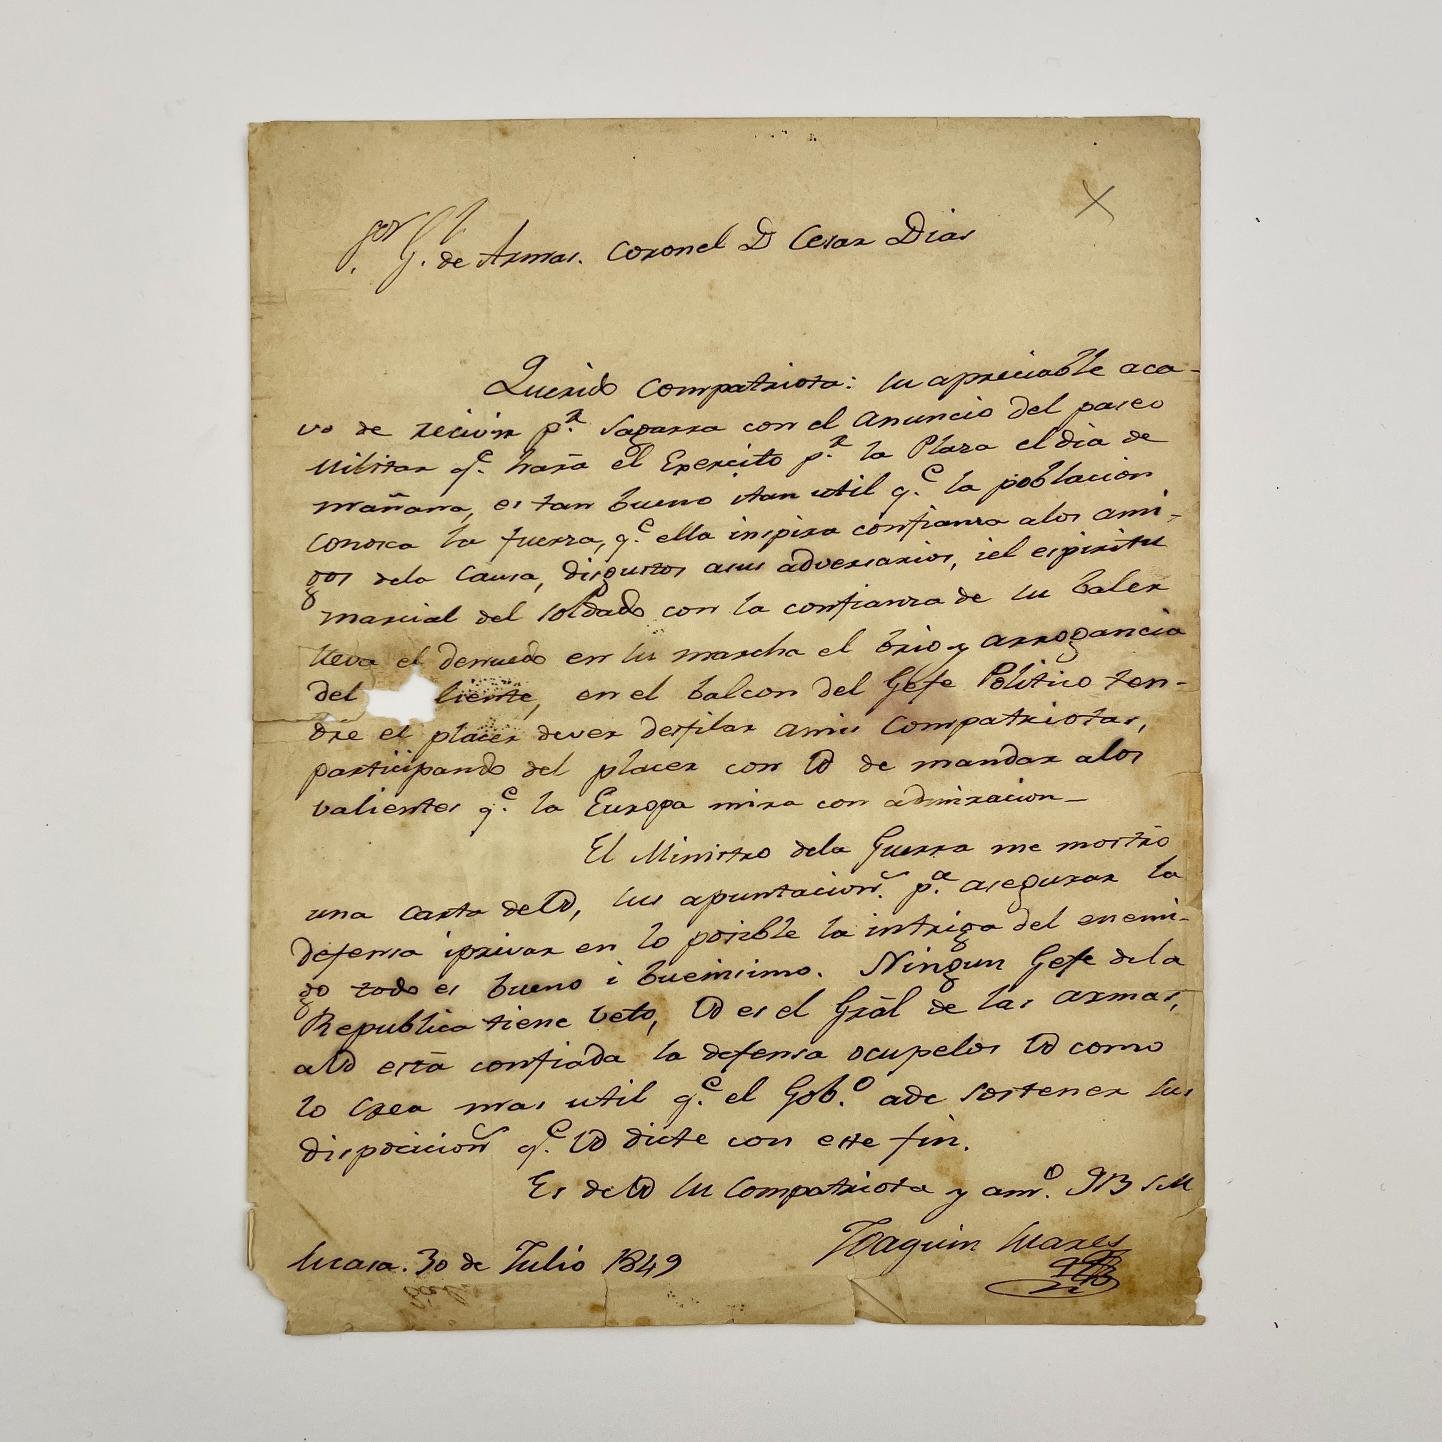 Sor G.l de Armas. Coronel D Cesar Dias
Querido Compatriota: su apreciable aca-
vo de recivir p.r Sagarra con el Anuncio del paseo
Militar q.e hará el Exercito p.r la Plaza el dia de
mañana, es tan bueno itan util q.e la poblacion
conosca la fuerza, q.e ella inspira confianza alos ami-
gos dela Causa, disgustos asus adversarios, iel espiritu
marcial del soldado con la confianza de su baler
lleva el denuedo en su marcha el brio y arrogancia
del liente, en el balcon del Gefe Politico ten-
dre el placer dever desfilar amis Compatriotas,
participando del placer con Vd de mandar alos
valientes q.e la Europa mira con admiracion_
El Ministro dela Guerra me mostró
una carta deVd, sus apuntacion.s p.a asegurar la
defensa iprivar en lo posible la intriga del enemi-
go todo es bueno i buenisimo. Ningun Gefe dela
Republica tiene veto, Vd es el Grãl de las armas,
aVd está confiada la defensa ocupelos Vd como
lo crea mas util q.e el Gob.o ade sostener sus
disposicion.s q.e Vd dicte con este fin.
Es deVd su Compatriota y am.o QB SM
Joaquin Suares
Sucasa. 30 de Julio 1849